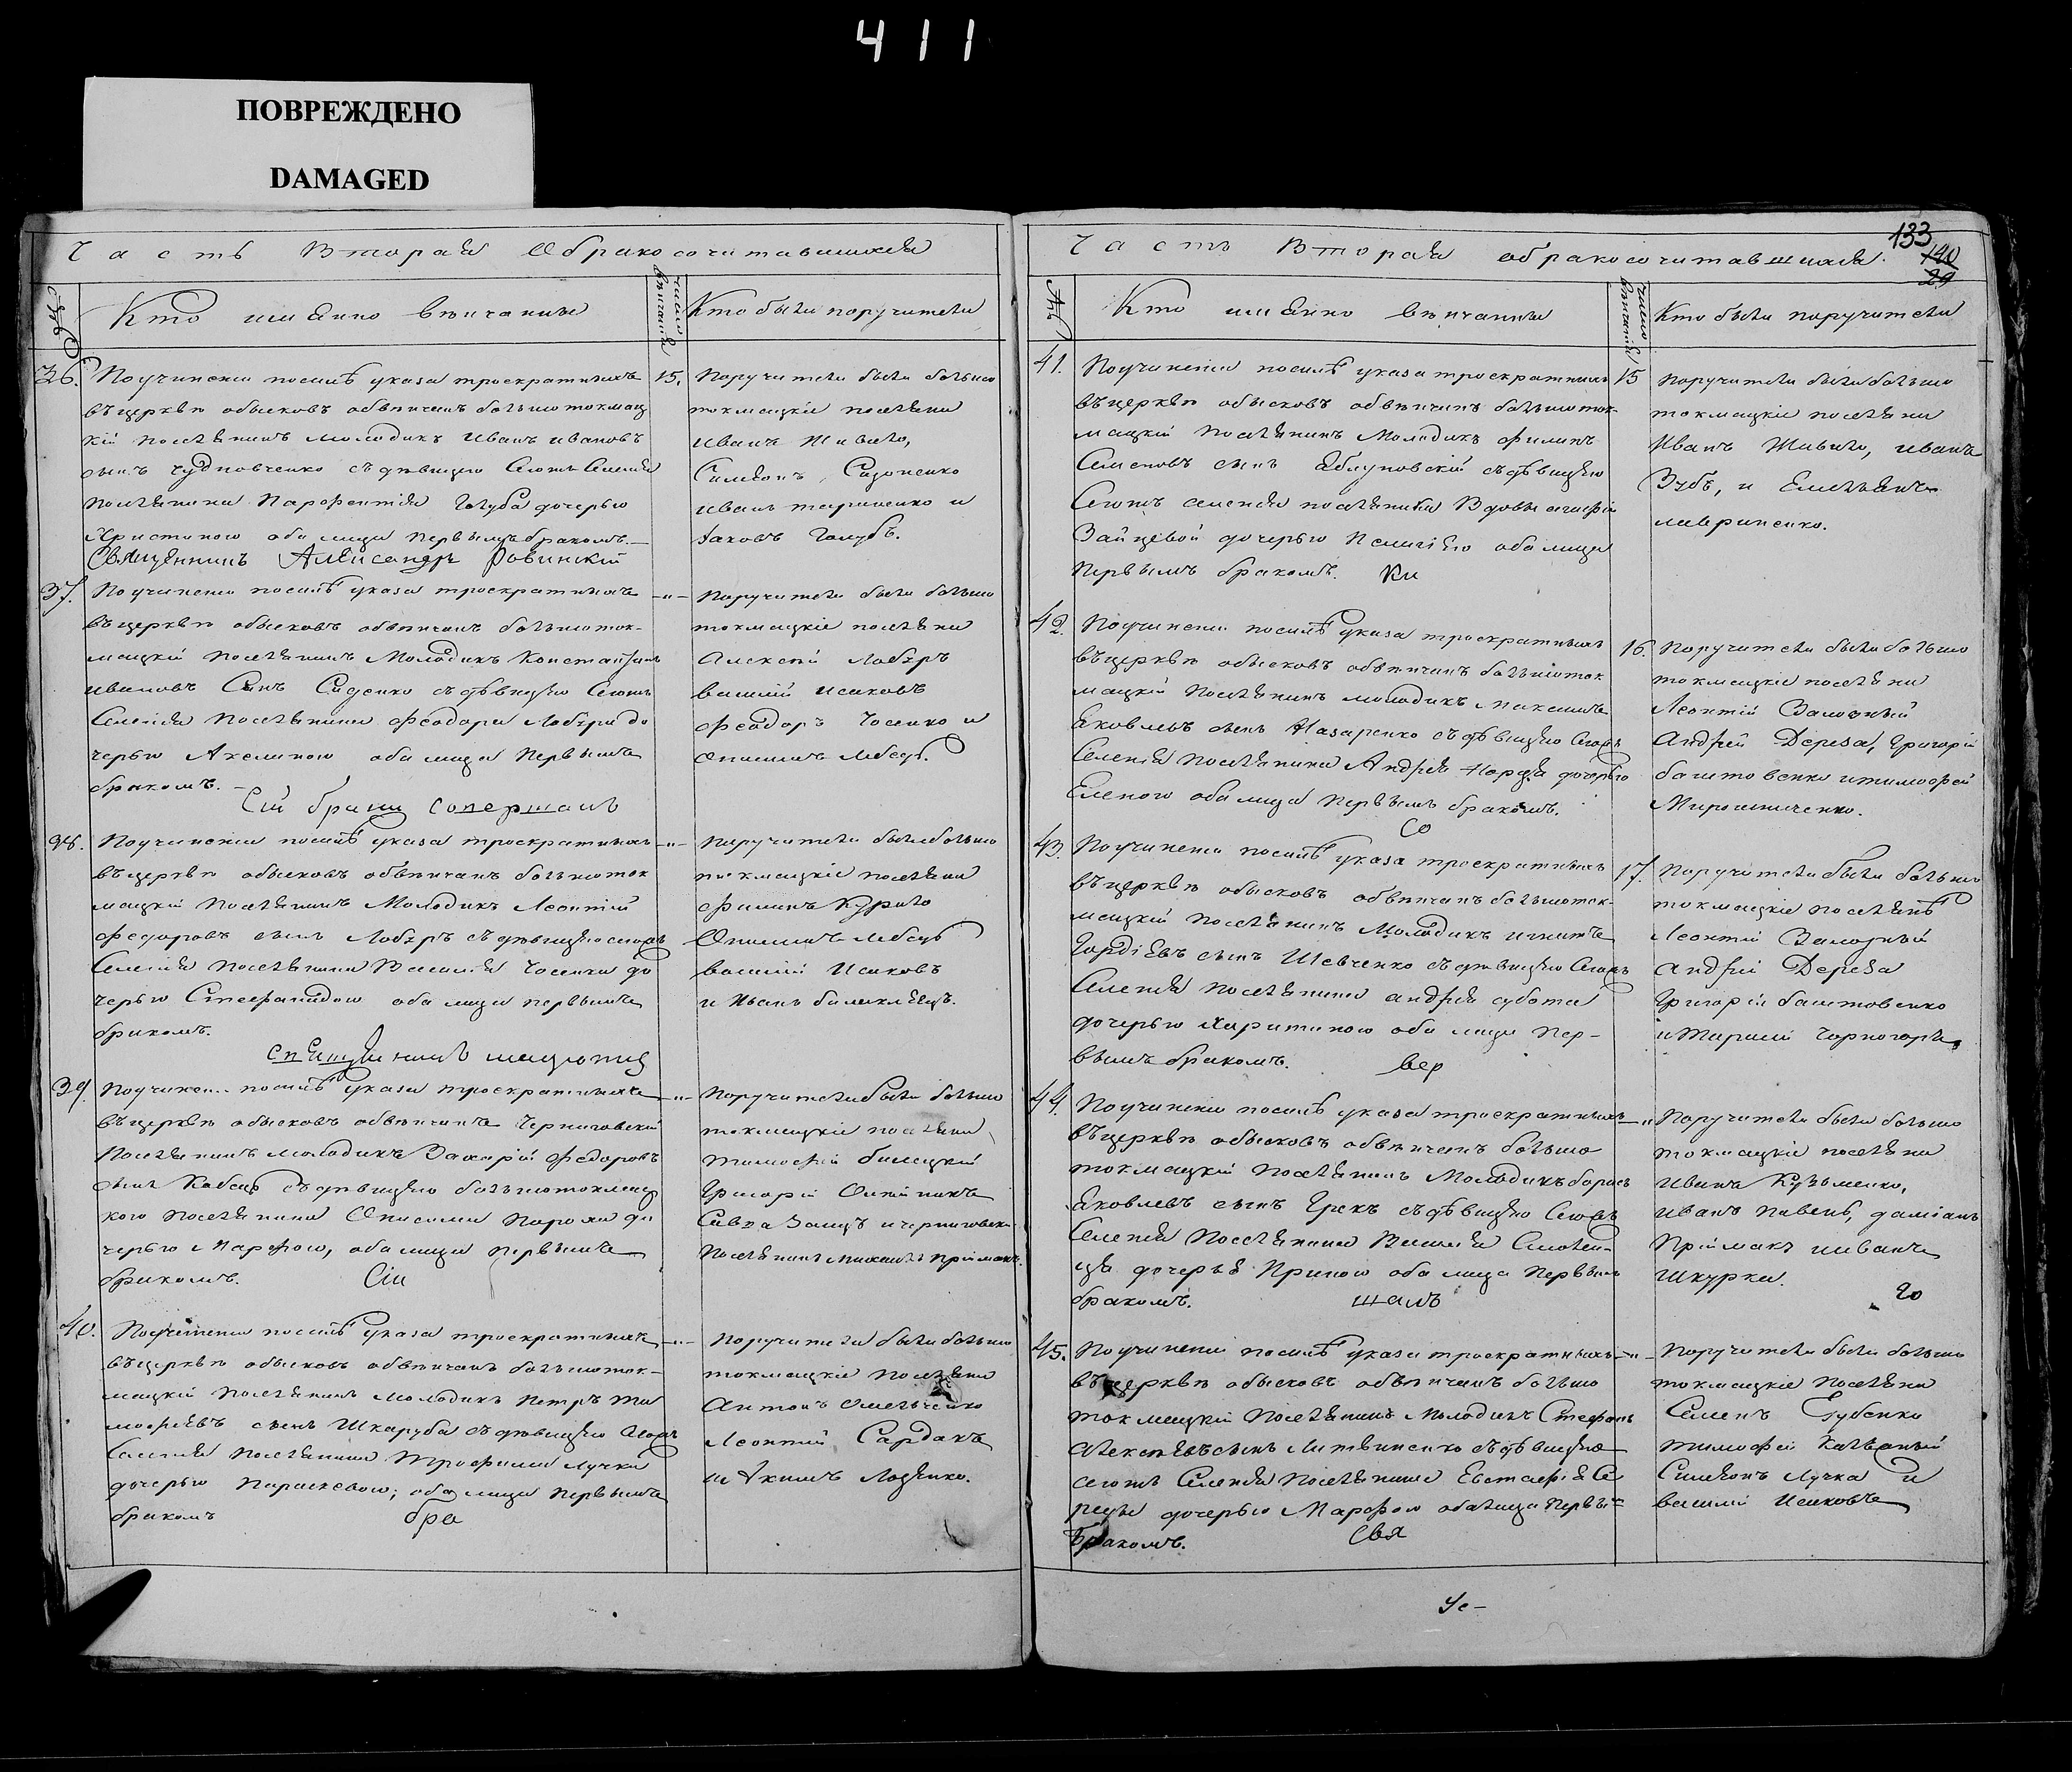 411
ПОВРЕЖДЕНО
DAMAGED
Часть Вторая О бракосочитавшихся
№
Кто имянно венчанны
число венчаний
Кто были поручители
36.
По учинении посилѣ указа троекратныхъ
въ церквѣ обысковъ обвѣнчанъ большотокмац
кій поселянинъ молодикъ Иванъ Ивановъ
сынъ Чудновченко съ дѣвицею сегожъ Селенія
поселянина Парфентія Голуба дочерью
Христиною оба лица первымъ бракомъ.
Священникъ Александръ Ровинскій
15.
Поручители были большо
токмацкіе поселяни
Иванъ Шивило,
Симеонъ Сидоненко
Иванъ и
Іаковъ Голубъ.
37.
По учинении посилѣ указа троекратныхъ
въ церквѣ обысковъ обвѣнчанъ большоток-
мацкій поселянинъ Молодикъ Константинъ
Ивановъ Сынъ Сиденко съ дѣвицею сегожъ
Селенія поселянина Феодора Лобура до
черью Акелиною оба лица первымъ
бракомъ.
Сіи браки совершалъ
-"-
Поручители были большо
токмацкіе поселяни
Алексѣй Лобуръ
Василій Исаковъ
Феодоръ Чосенко и
Онисимъ Лебедь.
38.
По учинении посилѣ указа троекратныхъ
въ церквѣ обысковъ обвѣнчанъ большоток
мацкій поселянинъ Молодикъ Леонтій
Федоровъ сынъ Лобуръ съ дѣвицею сегожъ
Селенія поселянина Василія Чосенка до
черью Стефанидою оба лица первымъ
бракомъ.
-"-
Поручители были большо
токмацкіе поселяни
Филипъ Курило
Онисимъ Лебедь
Василій Исаковъ
и Иванъ Балаклеецъ.
39.
По учинении посилѣ указа троекратныхъ
въ церквѣ обысковъ обвѣнчанъ Черниговскій
поселянинъ молодикъ Захарій Федоровъ
сынъ съ дѣвицею большотокмац
кого поселянина Онисима Порохи до
черью Марфою, оба лица первымъ
бракомъ. Сіи
-"-
Поручители были большо
токмацкіе поселяни
Тимофей Билецкій
Григорій Олійникъ
Савва Заицъ и черниговски
поселянинъ Михаилъ Пріймакъ.
40.
По учинении посилѣ указа троекратныхъ
въ церквѣ обысковъ обвѣнчанъ большоток-
мацкій поселянинъ молодикъ Петръ Ти
мофеевъ сынъ Шкаруба съ дѣвицею сегожъ
Селенія поселянина Трофима Лучки
дочерью Параскевою, оба лица первымъ
бракомъ бра
-"-
Поручители были большо
токмацкіе поселяни
Антонъ Омельченко
Леонтій Сардакъ
и Акимъ Лозенко.
133
140
29
Часть Вторая о бракосочитавшихся.
№
Кто имянно венчанны
число венчаний
Кто были поручители
41.
По учинении посилѣ указа троекратныхъ
въ церквѣ обысковъ обвѣнчанъ большоток-
мацкій поселянинъ Молодикъ Филипъ
Семеновъ сынъ Яблуновскій съ дѣвицею
Сегожъ селенія поселянки Вдовы Агафіи
Зайцевой дочерью Пелагіею оба лица
первымъ бракомъ. ки
15
Поручители были большо
токмацкіе поселяни
Иванъ Шивило, Иванъ
Зубъ, и Емельянъ
Лавриненко.
42.
По учинении посилѣ указа троекратныхъ
въ церквѣ обысковъ обвѣнчанъ большоток
мацкій поселянинъ молодикъ Максимъ
Яковлевъ сынъ Назаренко съ дѣвицею Сегожъ
Селенія поселянина Андрея дочерью
Еленою оба лица первымъ бракомъ.
со
16.
Поручители были большо
токмацкіе поселяни
Леонтій Заможный
Андрей Дереза, Григорій
Баштовенко и Тимофей
Мирошниченко.
43.
По учинении посилѣ указа троекратныхъ
въ церквѣ обысковъ обвѣнчанъ большоток-
мацкій поселянинъ Молодикъ Игнатъ
Гордіевъ сынъ Шевченко съ дѣвицею Сегожъ
Селенія поселянина Андрея Субота
дочерью Харитиною оба лица пер-
вымъ бракомъ. вер
17.
Поручители были большо
токмацкіе поселянѣ
Леонтій Заможный
Андрей Дереза
Григорій Баштовенко
и Тарасій Чорногоръ
44.
По учинении посилѣ указа троекратныхъ
въ церквѣ обысковъ обвѣнчанъ большо
токмацкій поселянинъ Молодикъ Борисъ
Яковлевъ сынъ Грекъ съ дѣвицею Сегожъ
Селенія поселянина Василія
ця дочерья Ириною оба лица первымъ
бракомъ. шалъ
-"-
Поручители были большо
токмацкіе поселяни
Иванъ Кузьменко,
Иванъ Пивень, Даміанъ
Пріймакъ и Иванъ
Шкурка.
го
45.
По учинении посилѣ указа троекратныхъ
въ церквѣ обысковъ обвѣнчанъ большо
токмацкій поселянинъ Молодикъ Стефанъ
Алексѣевъ сынъ Литвиненко съ дѣвицею
сегожъ Селенія поселянина Евстафія Се
реды дочерью Марфою оба лица первы
бракомъ. Свя
-"-
Поручители были большо
токмацкіе поселяни
Семенъ Губенко
Тимофей Кальяный
Симеонъ Лучка и
Василій Исаковъ